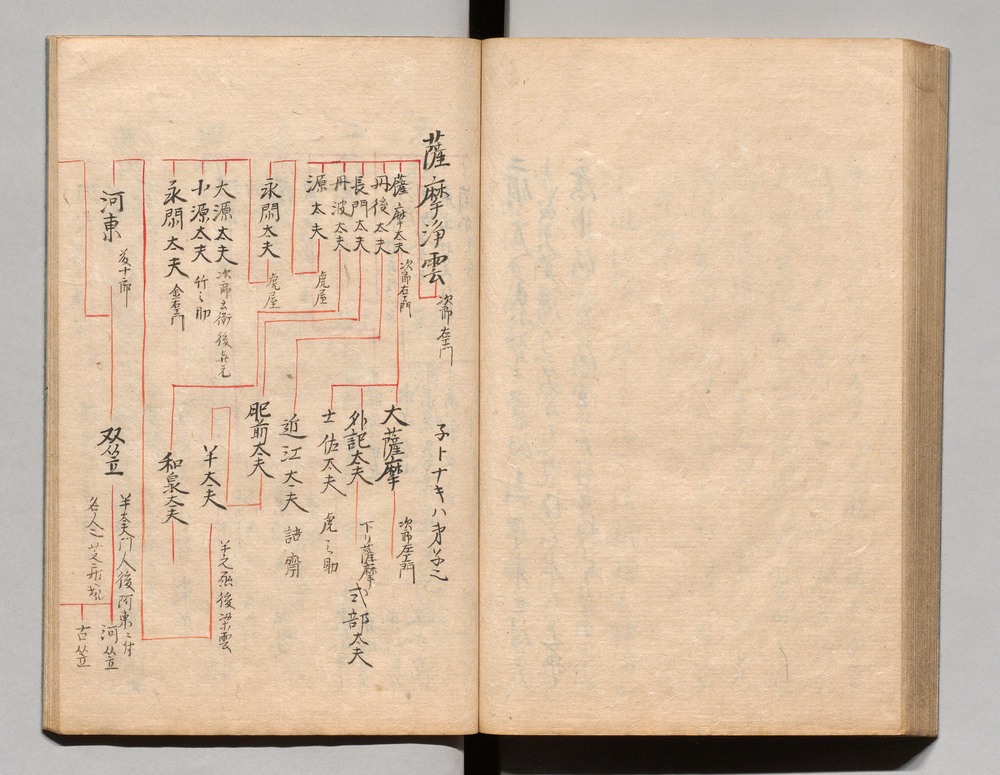 薩摩浄雲
次郎右エ門
子トナキハ弟子之
薩摩太夫
次郎右エ門
丹後太夫
長門太夫
丹波太夫
源太夫
虎屋
永閑太夫
虎屋
大源太夫
次郎兵衛
小源太夫
竹之助
永閑太夫
金右エ門
河東
藤十郎
大薩摩
次郎左エ門
外記太夫
下リ薩摩
式部太夫
土佐太夫
虎之助
近江太夫
語齋
肥前太夫
半太夫
半之丞後梁雲
和泉太夫
双笠
半太夫門人後河東ニ付
河笠
古笠